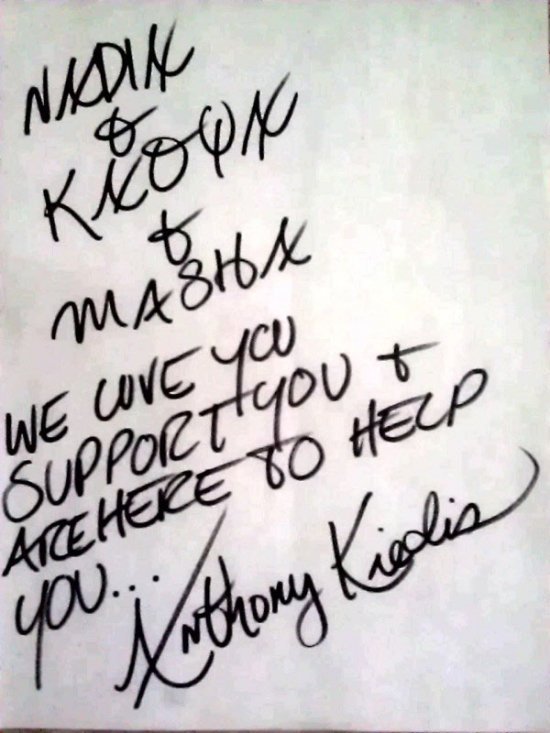 NADIA
&
KATYA
&
MASHA
WE LOVE YOU
SUPPORT YOU &
ARE HERE TO HELP
YOU...
Anthony Kiedis